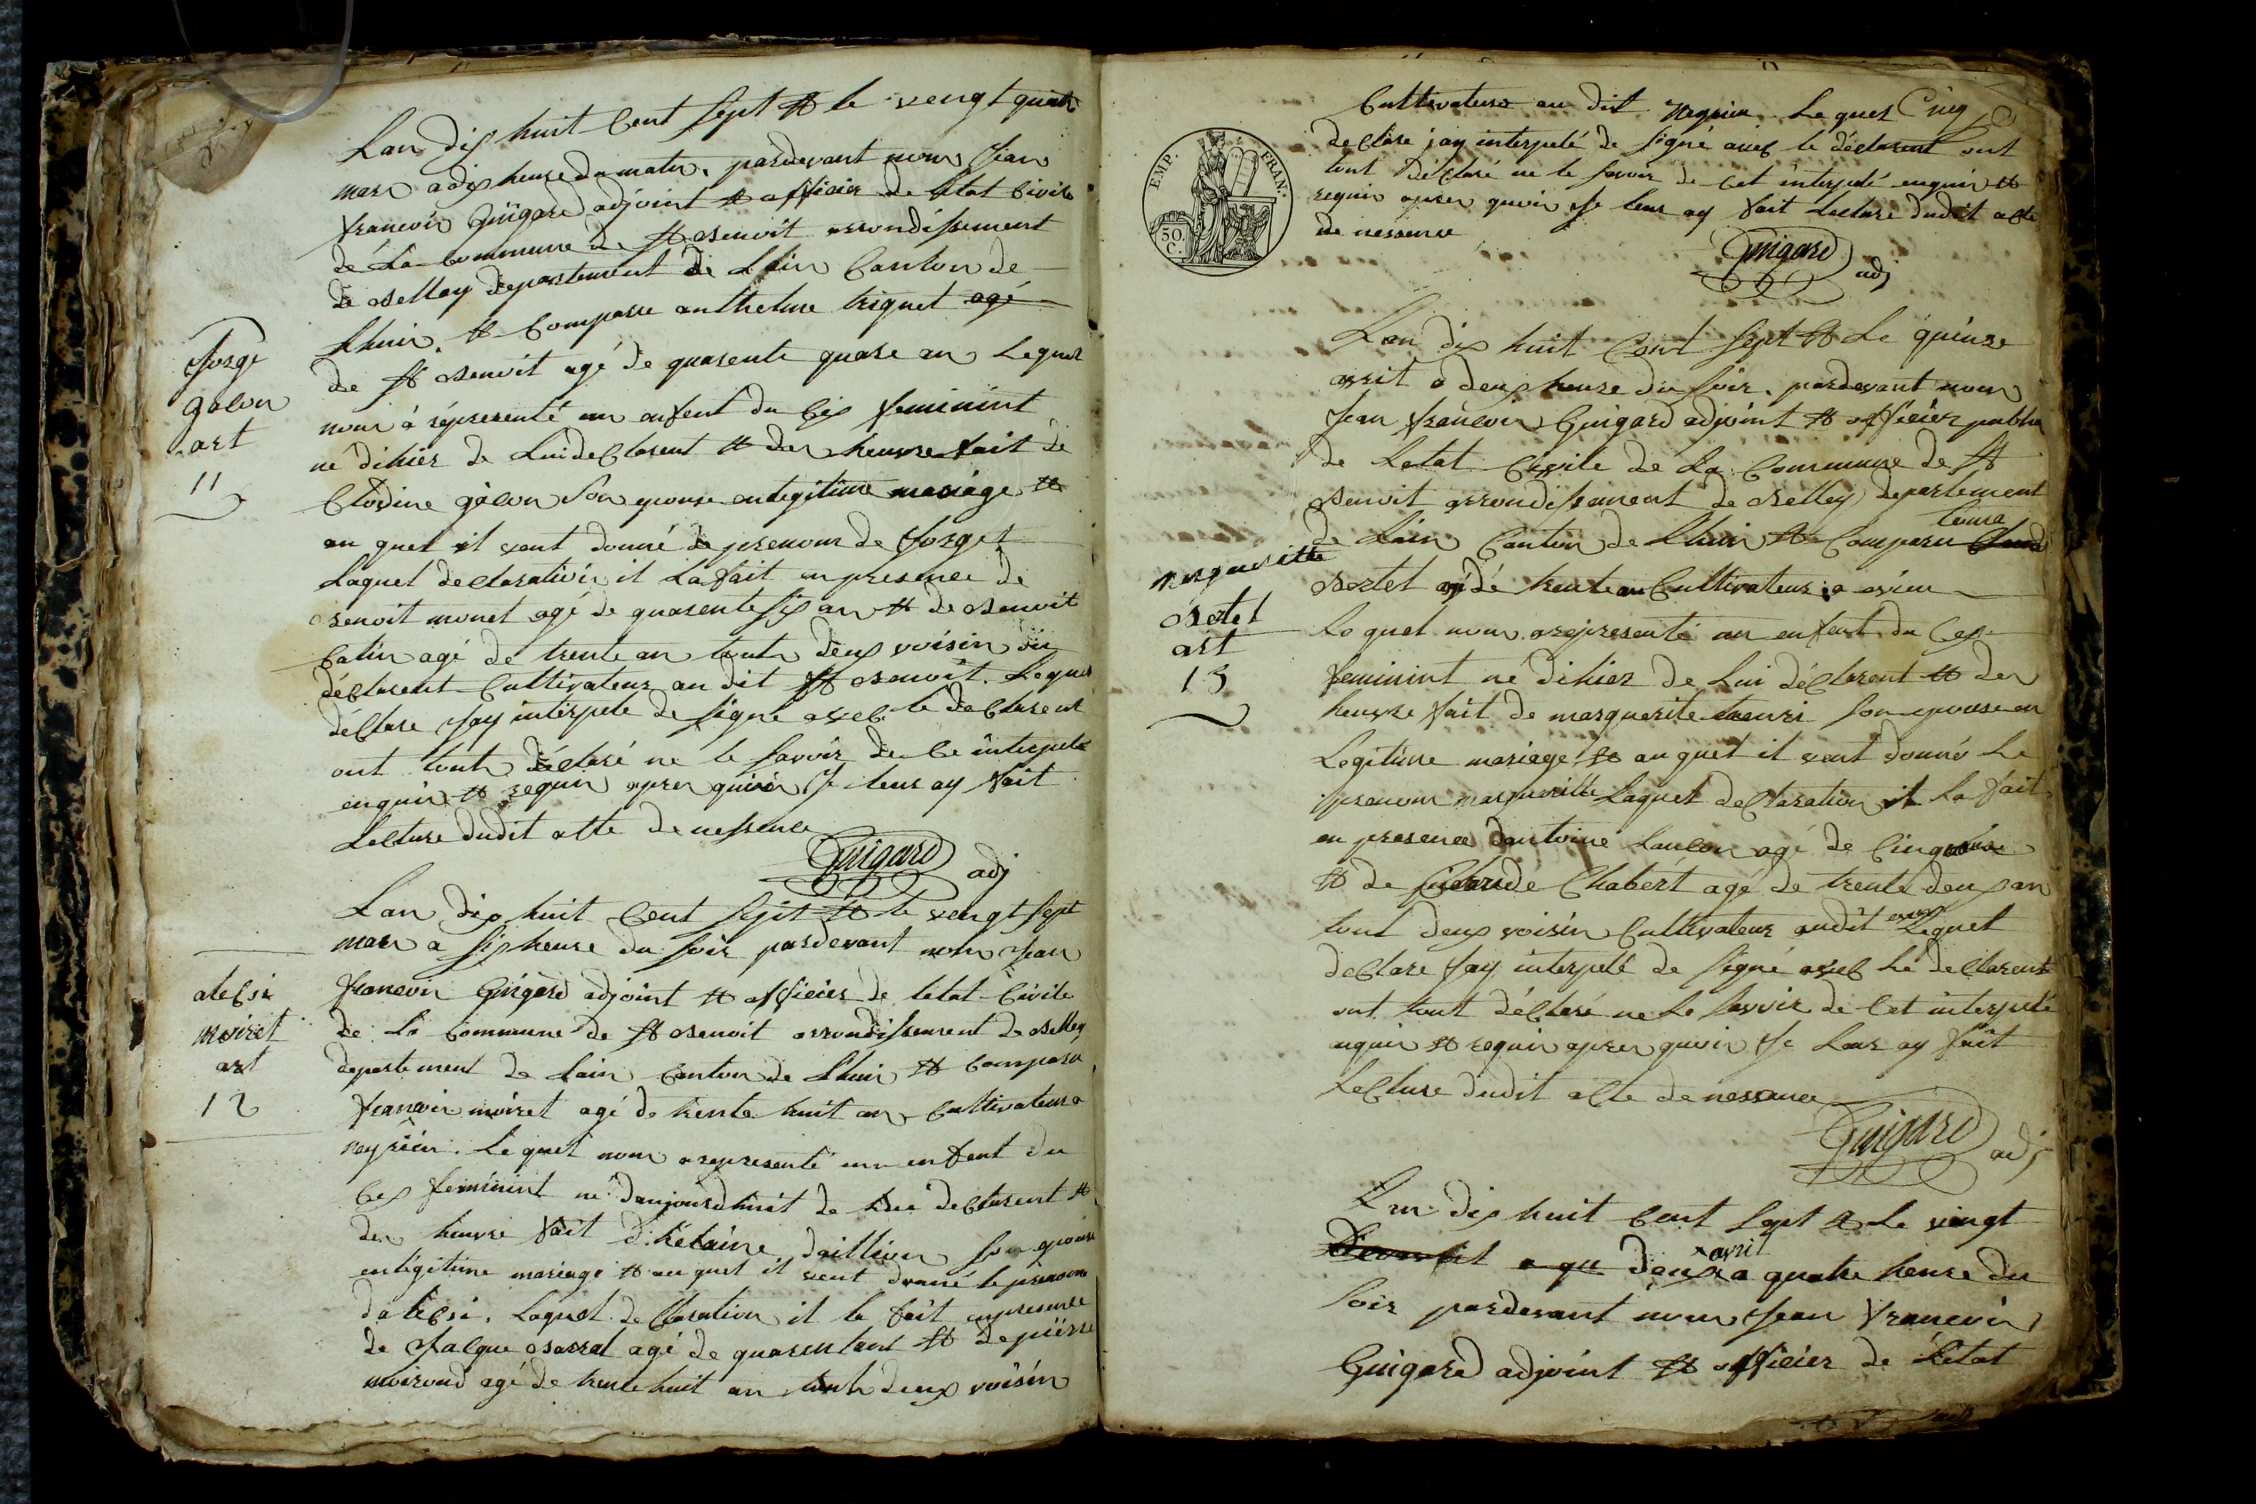 Lan dix huit Cent Sept et le vengt quatre
mars a dix heure du matin, pardevant nous Jean
francois Guigard adjoint et officier de letat Civile
de La Commune de St Benoit arrondissement
de Belley departement de Lain Canton de
Lhuis, et Comparu anthelme triquet agé
de St Benoit agé de quarente quatre an Lequel
nous à répresenté un enfent du Cex feminint
né dihier de Lui declarent et des heuvre fait de
Clodine galon Son epouse en legitime mariage et
au quel il veut donné le prenom de Jorge
Laquel declaration il La fait en presence de
Benoit monet agé de quarente six an et de Benoit
Catin agé de trente an touts deux voisin du
déclarent Cultivateur au dit St Benoit. Lequel
déclare Jay interpelé de signé avec le declarent
ont touts déclaré ne le Savoir de Ce interpelé
enquis et requis apres quoi Je leur ay fait
Lecture dudit acte de nessence
Guigard adj
Jorge
galon
art
11
Lan dix huit Cent Sept et le vengt sept
mars a six heure du soir pardevant nous Jean
francois Guigard adjoint et officier de letat Civile
de La Commune de St Benoit arrondissement de Belley
departement de Lain Canton de Lhuis et Comparu
francois moiret agé de trente huit an Cultivateur a
. Lequel nous a representé un enfent du
Cex feminint né daujourdhuit de Lui declarent et
des heuvre fait dhélaine daillion Son epouse
en legitime mariage et au quel il veut donné le prenom
dalecsi. Laquel declaration il la fait en presence
de Jacque Barral agé de quarentant et de pierre
moiroud agé de trente huit an touts deux voisin
alecsi
moiret
art
12
EMP. FRAN.
50.
C.
Cultivateur au dit Lequel Cinq
declare jay interpelé de signé avec le déclarent ont
tout déclaré ne le savoir de Cet interpelé enquis et
requis apres quoi Je leur ay fait Lecture dudit acte
de nessence
Guigard adj
Lan dix huit Cent Sept et Le quinze
avrit a deux heure du soir, pardevant nous
Jean francois Guigard adjoint et officier publis
de Letat Civile de La Commune de St
Benoit arrondissement de Belley departement
Loure
de Lain Canton de Lhuis et Comparu
Bertet agé de trente an Cultivateur a evieu
Lequel nous a representé un enfent du Cex
feminint né dihier de Lui déclarent et des
heuvre fait de marguerite Son epouse en
Legitime mariage et au quel il veut donné Le
prenom marguerite Laquel declaration il La fait
en presence dantoine Lancon agé de Cinquante
et de Claude Chabert agé de trente deux an
evieu
tout deux voisin Cultivateur audit Lequel
declare Jay interpelé de signé avec Le declarent
ont tout déclaré ne Le Savoir de Cet interpelé
enquis et requis apres quoi Je Leur ay fait
Lecture dudit acte de nessance
Guigard adj
marguerite
Bertet
art
13
Lan dix huit Cent Sept et Le vingt
avril
deux a quatre heure du
soir pardevant nous Jean francois
Guigard adjoint et officier de Létat